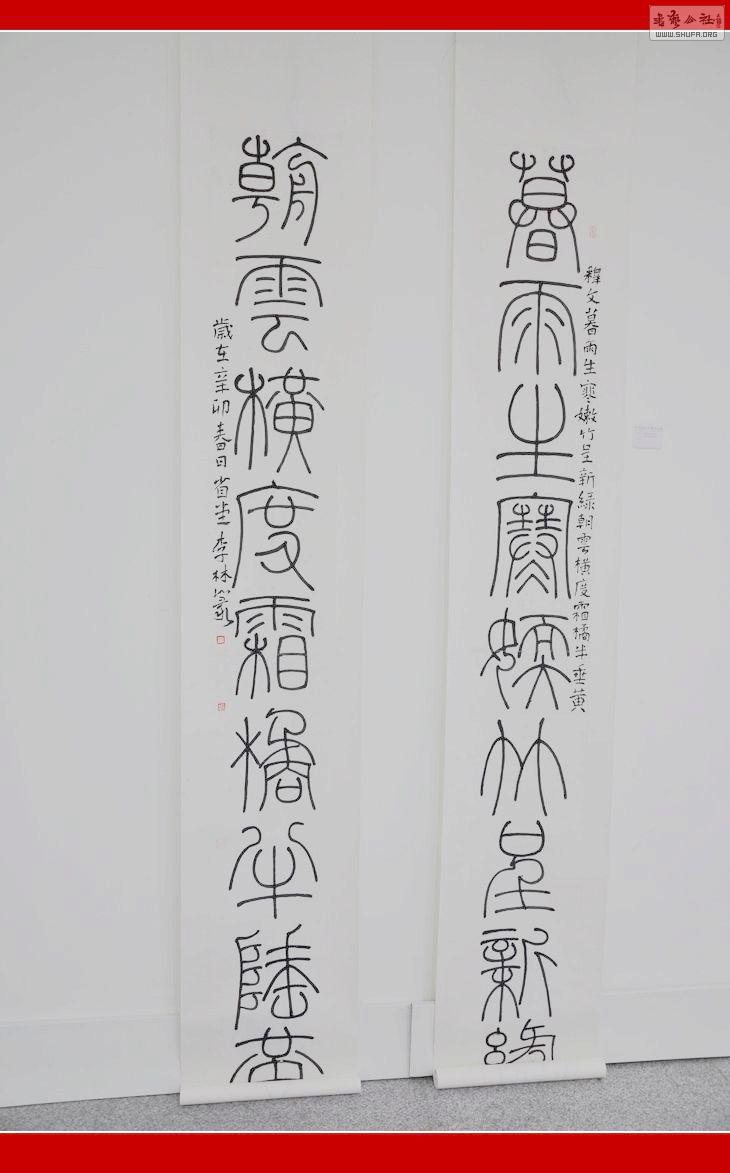 書艺公社
WWW.SHUFA.ORG
暮雨生寒嫩竹呈新綠
釋文暮雨生寒嫩竹呈新綠朝雲橫度霜橘半垂黃
朝雲橫度霜橘半陲黃
歲在辛卯春日省堂李林篆